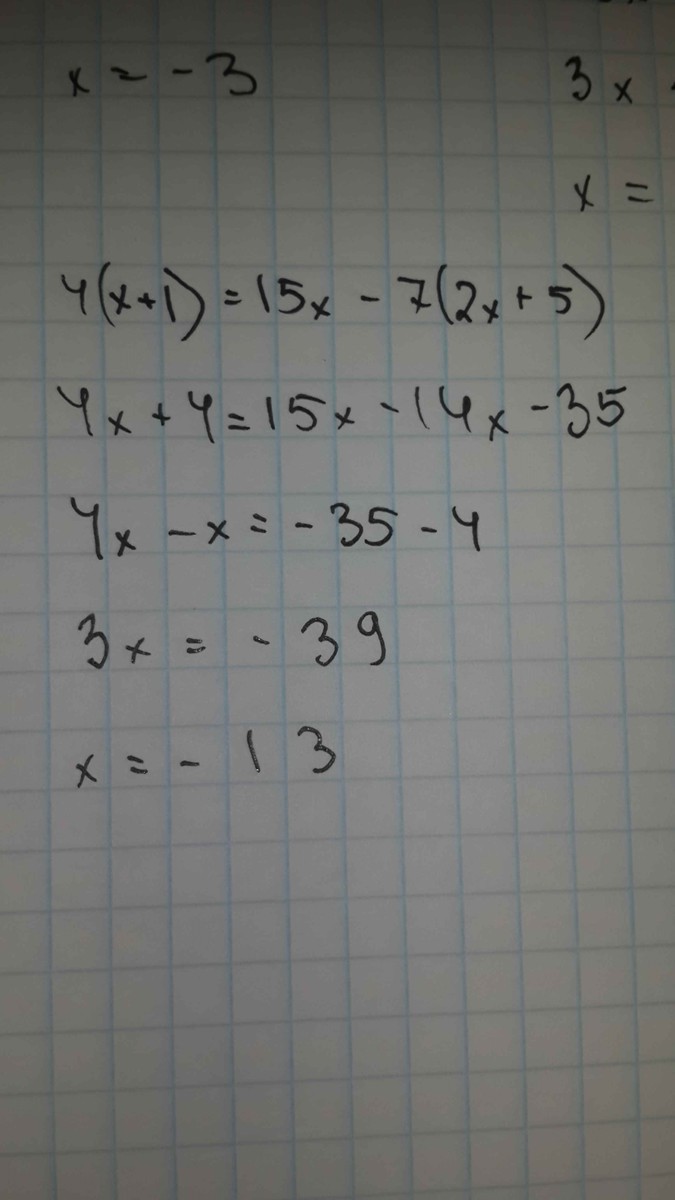 x = -3
3x
x =
4(x+1) = 15x - 7(2x + 5)
4x + 4 = 15x - 14x - 35
4x - x = - 35 - 4
3x = - 39
x = - 13